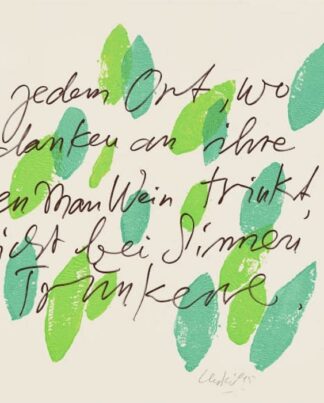 jedem Ort, wo
danken an ihre
en man Wein trinkt,
icht bei Sinnen,
Trunkene,